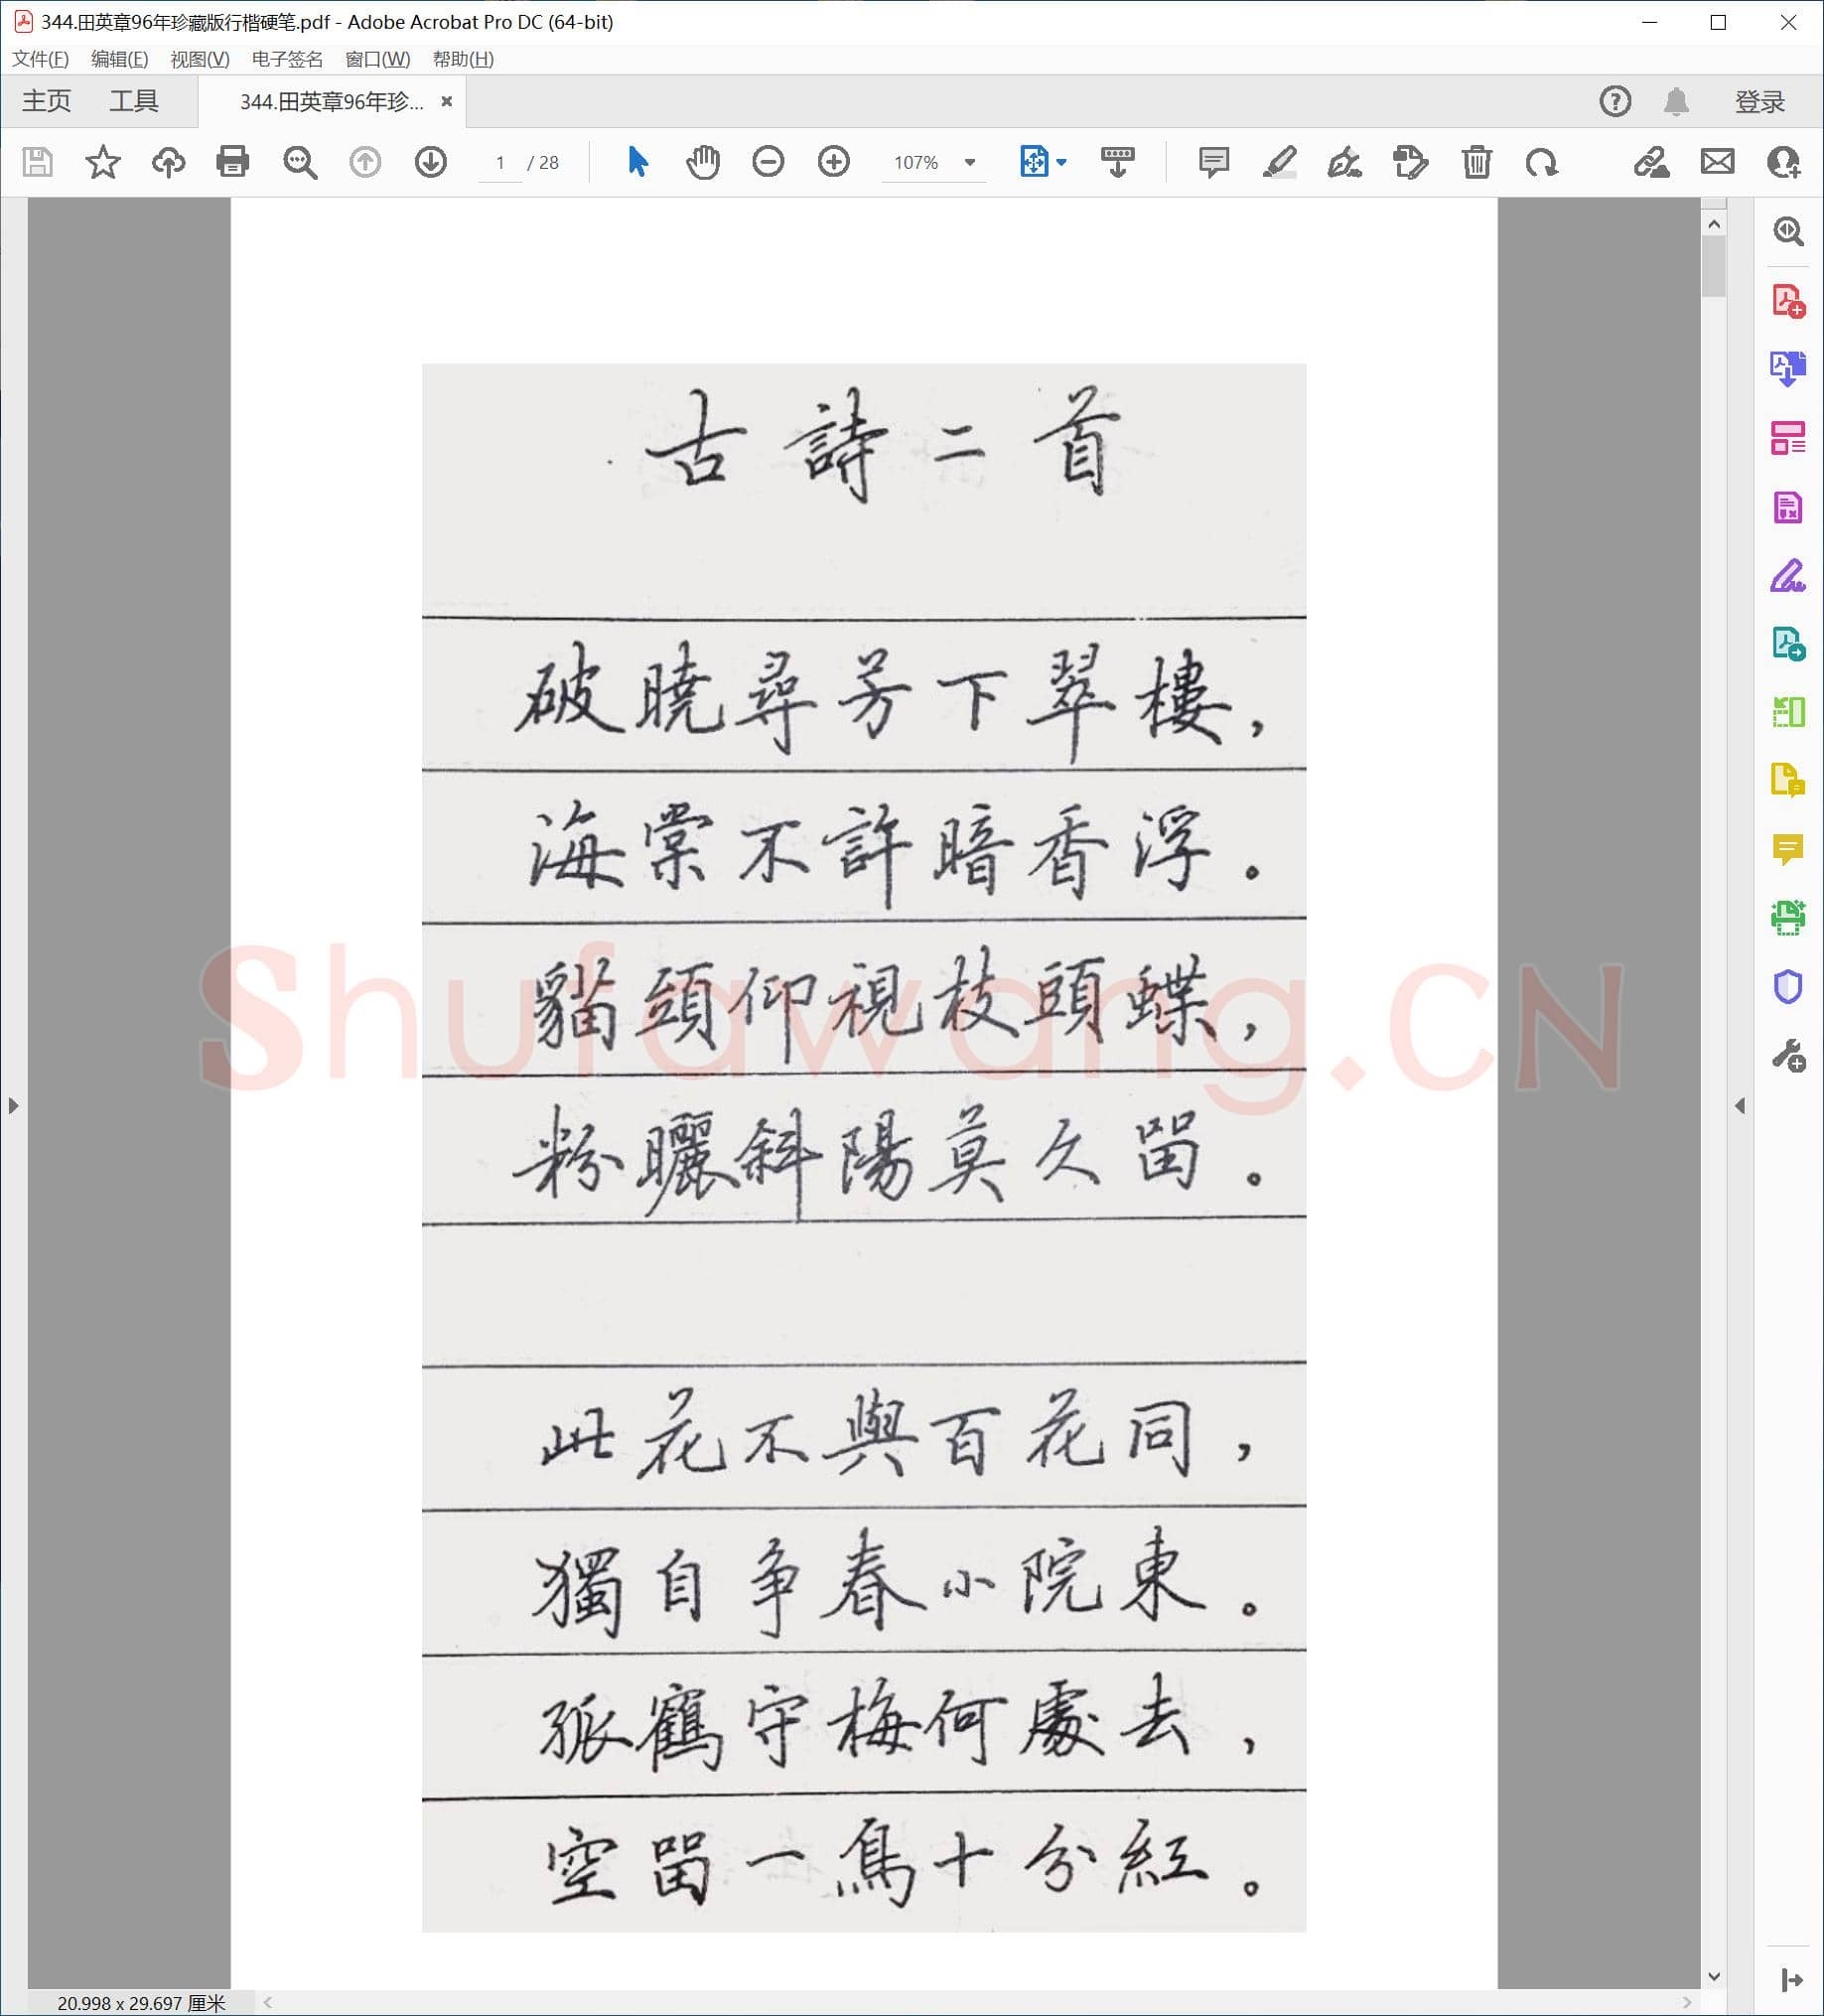 344.田英章96年珍藏版行楷硬笔.pdf - Adobe Acrobat Pro DC (64-bit)
文件(F) 编辑(E) 视图(V) 电子签名 窗口(W) 帮助(H)
主页 工具 344.田英章96年珍... × 登录
1 / 28 107%
古詩二首
破曉尋芳下翠樓，
海棠不許暗香浮。
貓頭仰視枝頭蝶，
粉曬斜陽莫久留。
Shufawang.CN
此花不與百花同，
獨自争春小院東。
孤鶴守梅何處去，
空留一鳥十分紅。
20.998 x 29.697 厘米